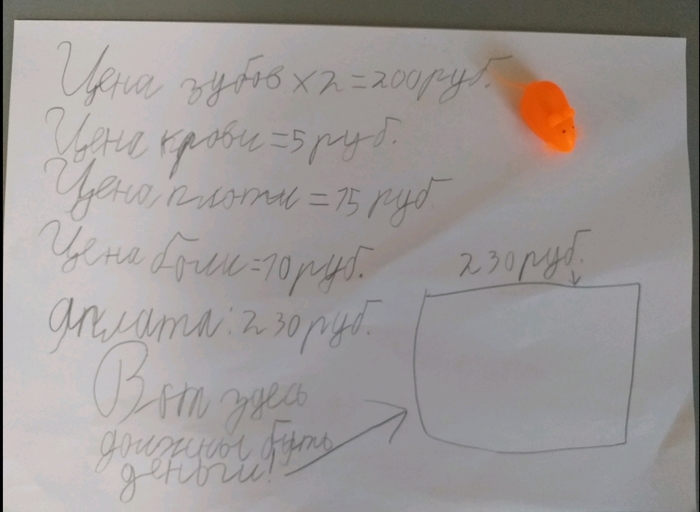 Цена зубов x 2 = 200 руб.
Цена крови = 5 руб.
Цена плоти = 15 руб
Цена боли = 10 руб.
Оплата: 230 руб.
230 руб.
Вот здесь
должны быть
деньги!